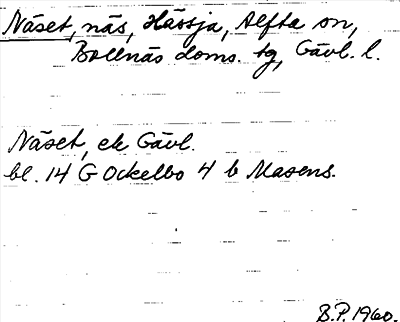 Näset, näs, Hässja, Alfta sn,
Bollnäs doms. tg, Gävl. l.
Näset, ek Gävl.
bl. 14 G Ockelbo 4 b Masens.
B.P. 1960.